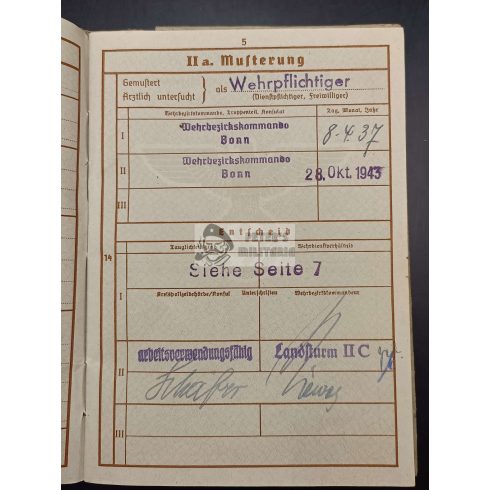 5
IIa. Musterung
Gemustert
Ärztlich untersucht
als Wehrpflichtiger
(Dienstpflichtiger, Freiwilliger)
Wehrbezirkskommando, Truppenteil, Konsulat
Tag, Monat, Jahr
I
Wehrbezirkskommando
Bonn
8.4.37
II
Wehrbezirkskommando
Bonn
28. Okt. 1943
III
Entscheid
PETER'S
MILITARIA
14
Wehrdienstverhältnis
I
Siehe Seite 7
Kreispolizeibehörde/Konsul
Unterschriften
Wehrbezirkskommandeur
II
arbeitsverwendungsfähig
Landsturm II C
III